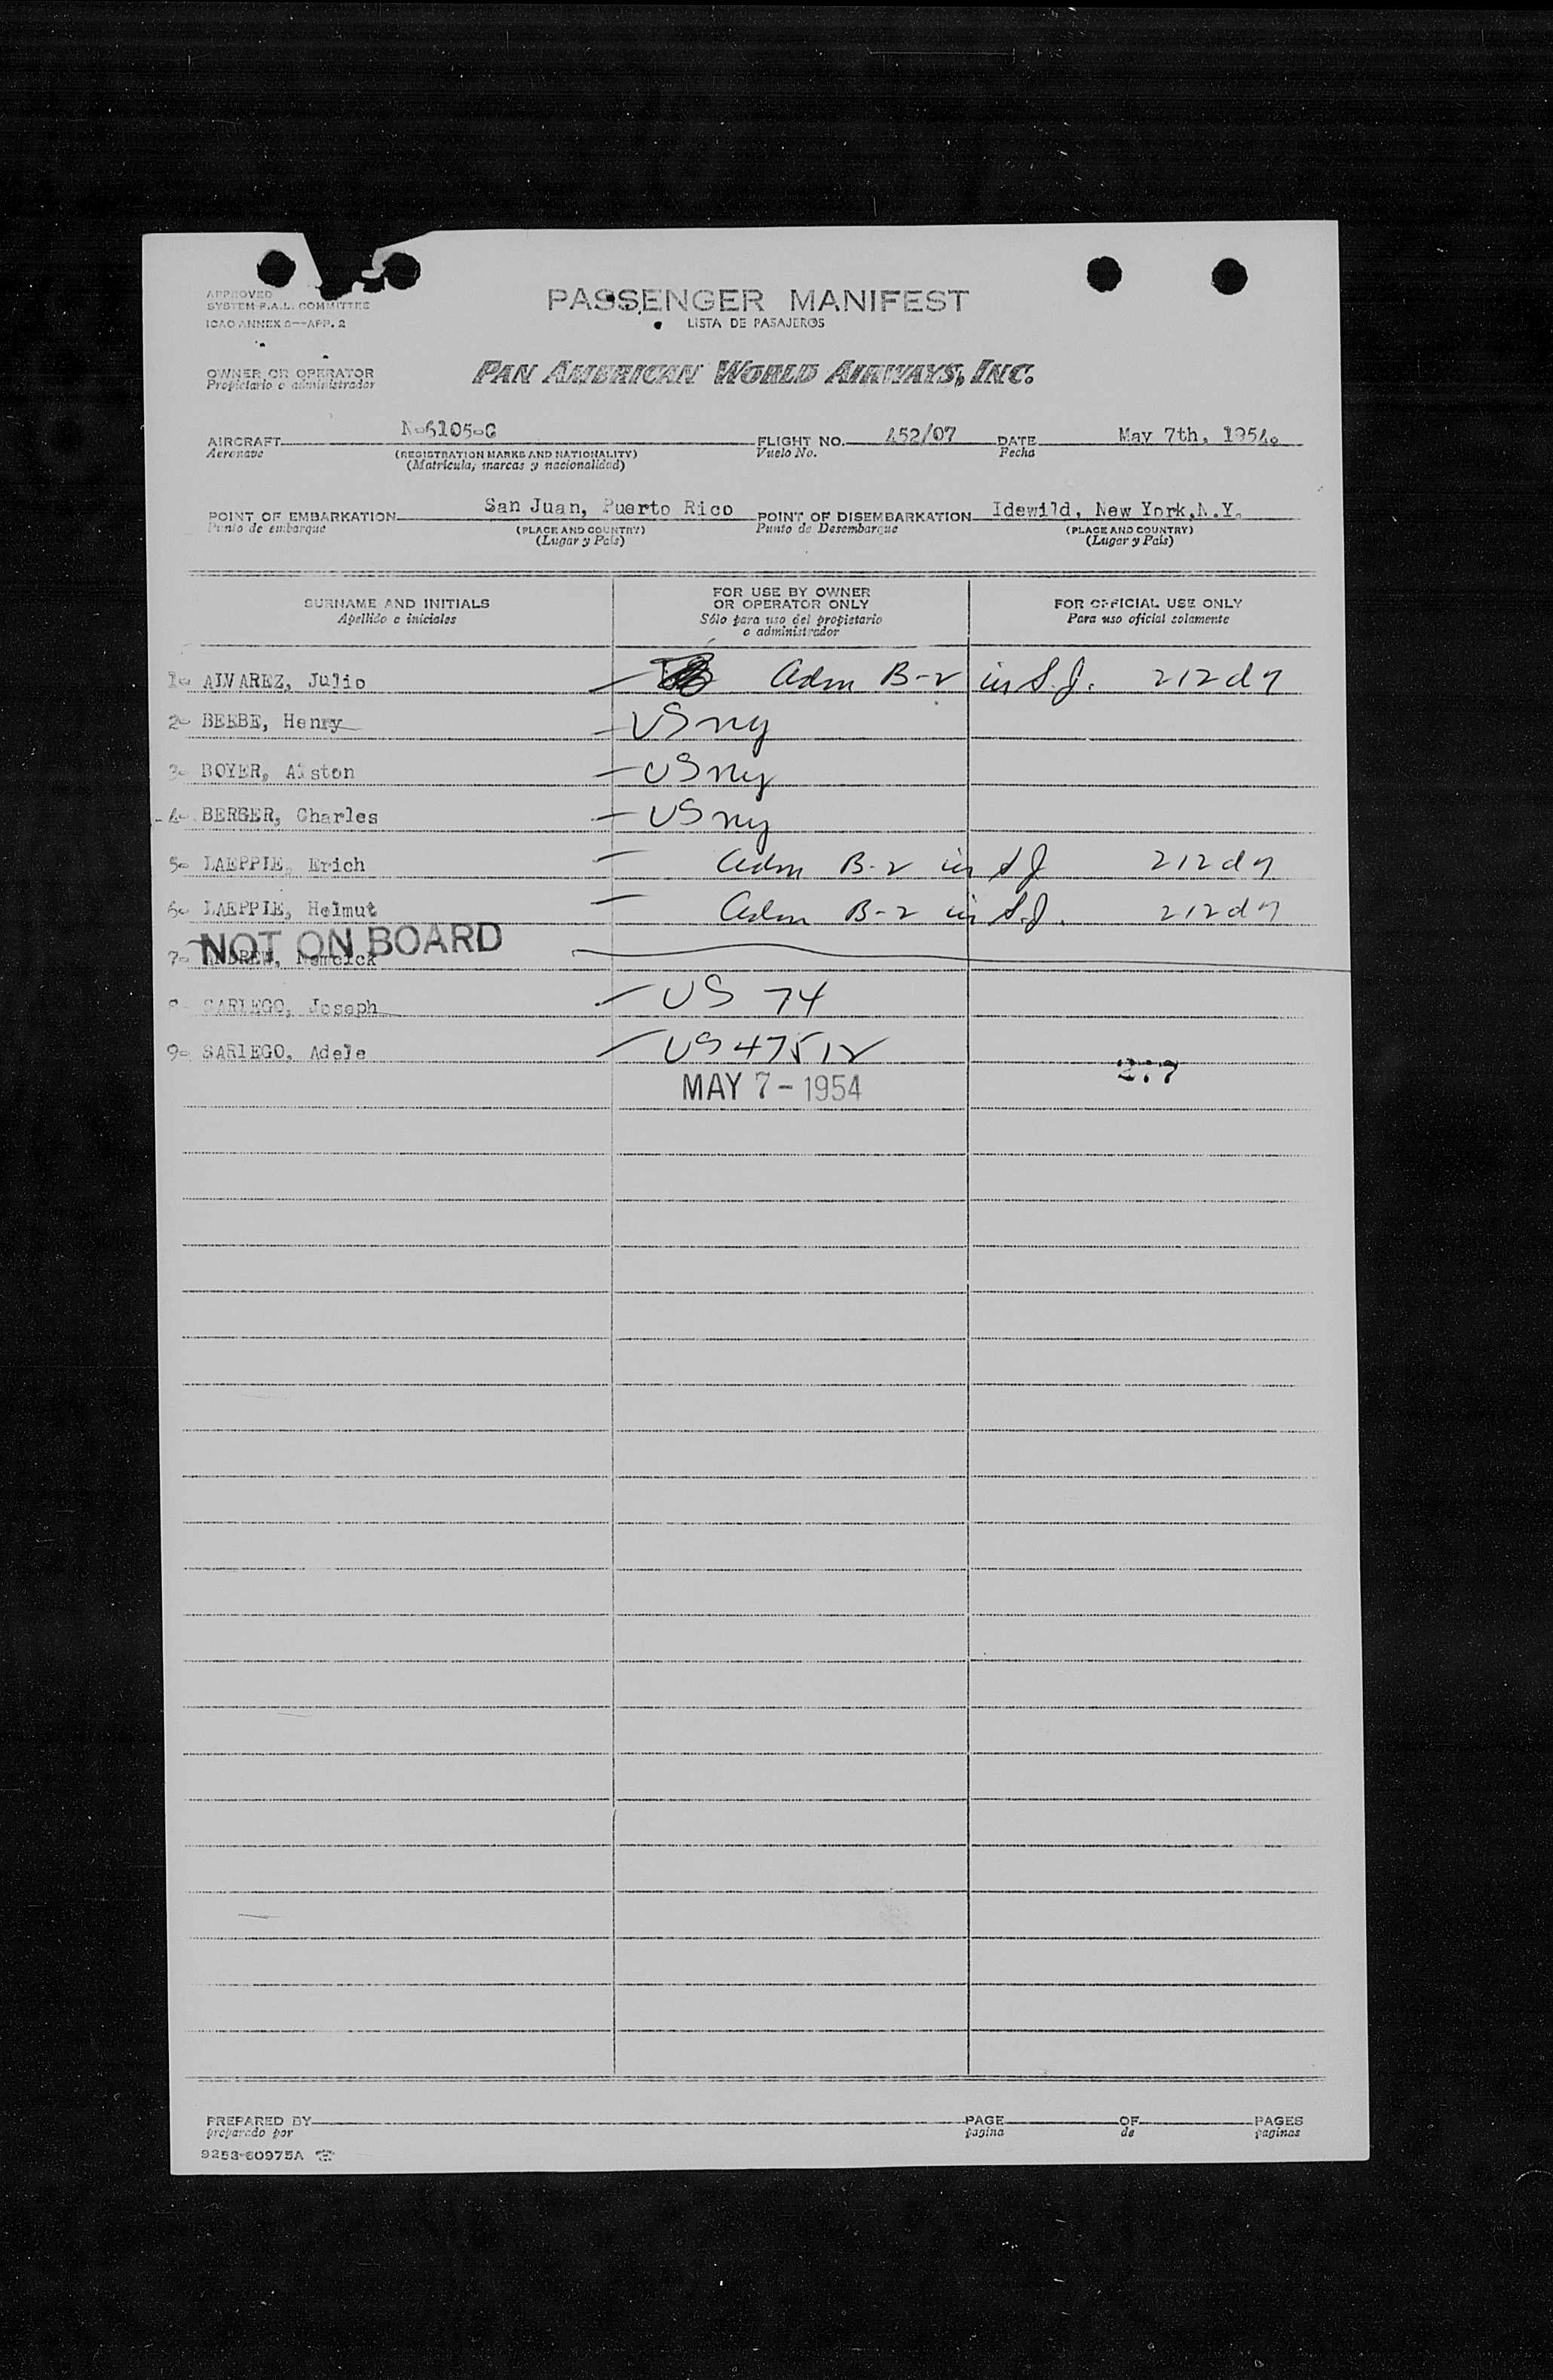 APPROVED
SYSTEM F.A.L. COMMITTEE
ICAO ANNEX 9—APP. 2
PASSENGER MANIFEST
LISTA DE PASAJEROS
OWNER OR OPERATOR
Propietario o administrador
PAN AMERICAN WORLD AIRWAYS, INC.
AIRCRAFT N-6105-C FLIGHT NO. 452/07 DATE May 7th, 1954.
Aeronave (REGISTRATION MARKS AND NATIONALITY) Vuelo No. Fecha
(Matrícula, marcas y nacionalidad)
POINT OF EMBARKATION San Juan, Puerto Rico POINT OF DISEMBARKATION Idewild, New York,N.Y.
Punto de embarque (PLACE AND COUNTRY) Punto de Desembarque (PLACE AND COUNTRY)
(Lugar y País) (Lugar y País)
SURNAME AND INITIALS
Apellido e iniciales
FOR USE BY OWNER
OR OPERATOR ONLY
Sólo para uso del propietario
o administrador
FOR OFFICIAL USE ONLY
Para uso oficial solamente
1- ALVAREZ, Julio Adm B-2 in S.J. 212d7
2- BEEBE, Henry US ny
3- BOYER, Alston US ny
4- BERGER, Charles US ny
5- LAEPPLE, Erich Adm B-2 in SJ 212d7
6- LAEPPLE, Helmut Adm B-2 in S.J. 212d7
NOT ON BOARD
7- ANDREW,
8- SARIEGO, Joseph US 74
9- SARIEGO, Adele US 47512
MAY 7 - 1954
PREPARED BY PAGE OF PAGES
preparado por pagina de paginas
9253-60975A